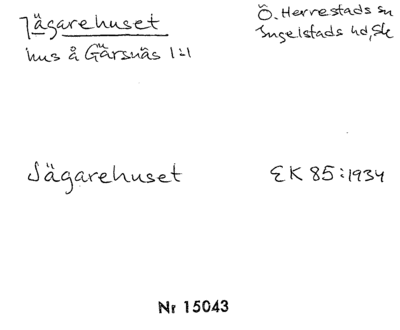 Jägarehuset
hus å Gärsnäs 1:1
Ö. Herrestads sn
Ingelstads hd, Sk
Jägarehuset
EK 85:1934
Nr 15043